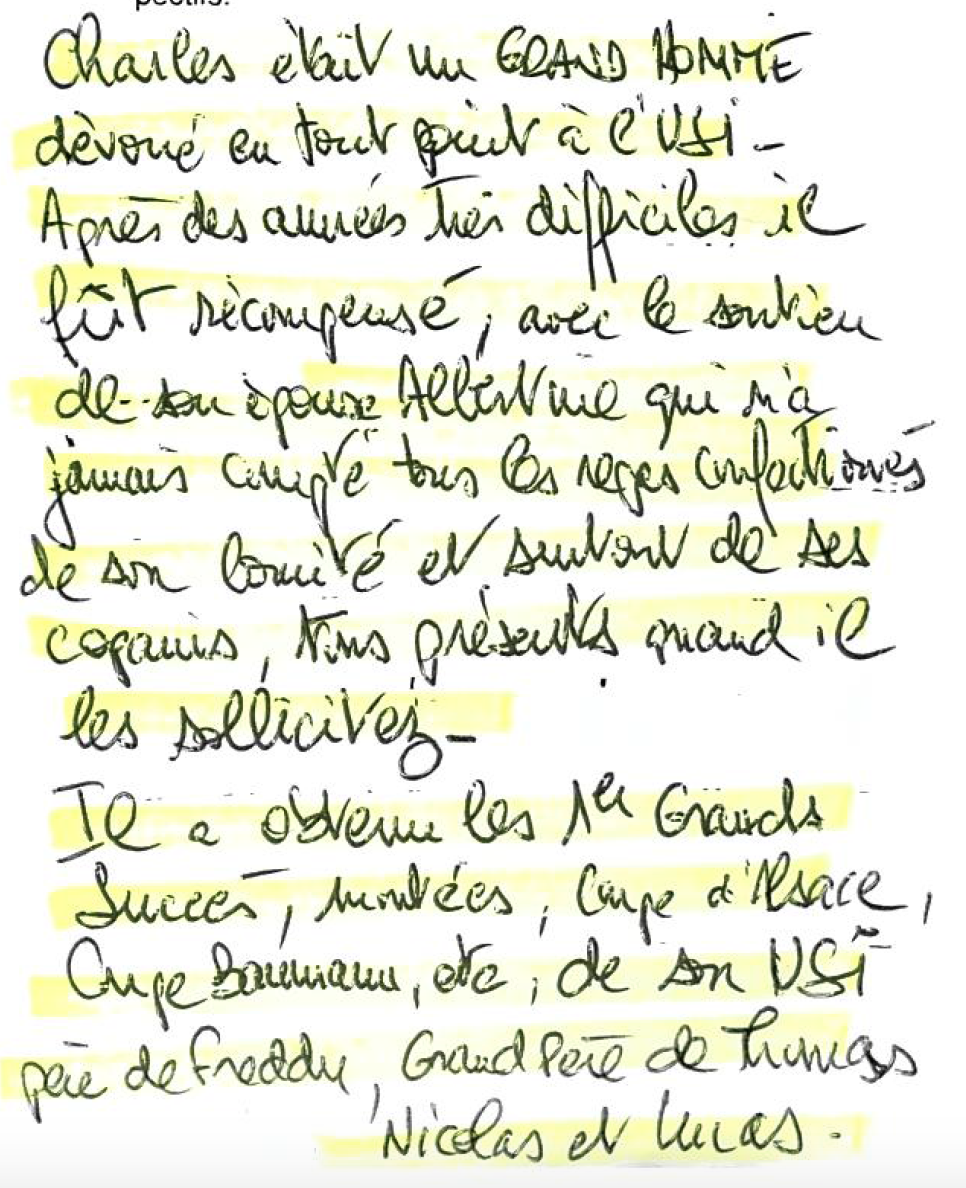 pectifs.
Charles était un GRAND HOMME
dèvoué en tout point à l'USI -
Après des années très difficiles il
fût récompensé, avec le soutien
de son épouse Albertine qui n'a
jamais compté tous les repas confectionnés
de son Comité et surtout de ses
copains, tous présents quand il
les sollicitez -
Il a obtenu les 1er Grands
Succès, montées, Coupe d'Alsace,
Coupe Baumann, etc, de son USI
père de Freddy, Grand Père de Thomas
Nicolas et Lucas.